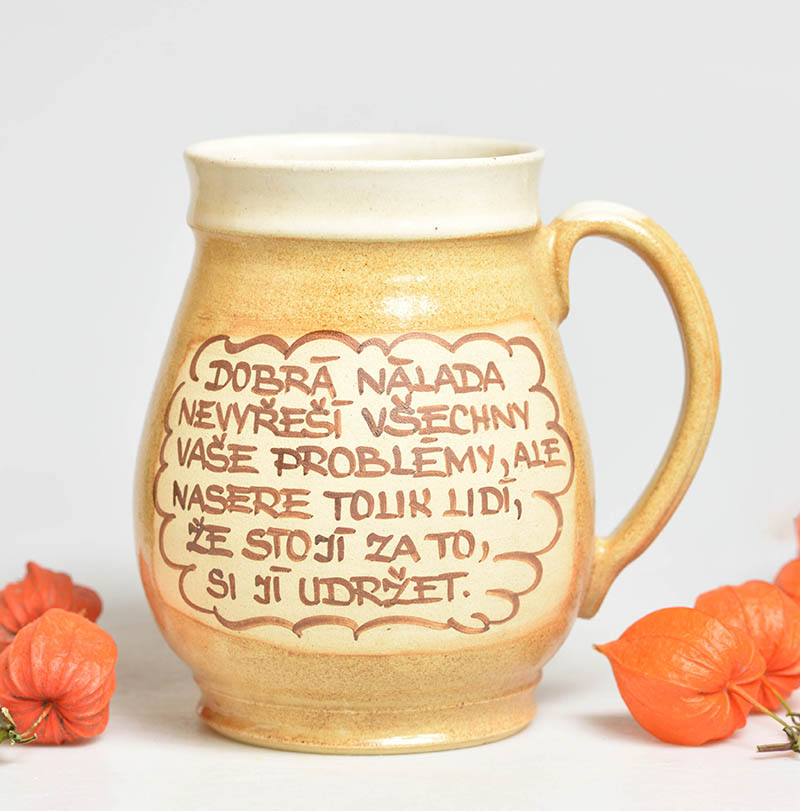 DOBRÁ NÁLADA
NEVYŘEŠÍ VŠECHNY
VAŠE PROBLÉMY, ALE
NASERE TOLIK LIDÍ,
ŽE STOJÍ ZA TO,
SI JÍ UDRŽET.